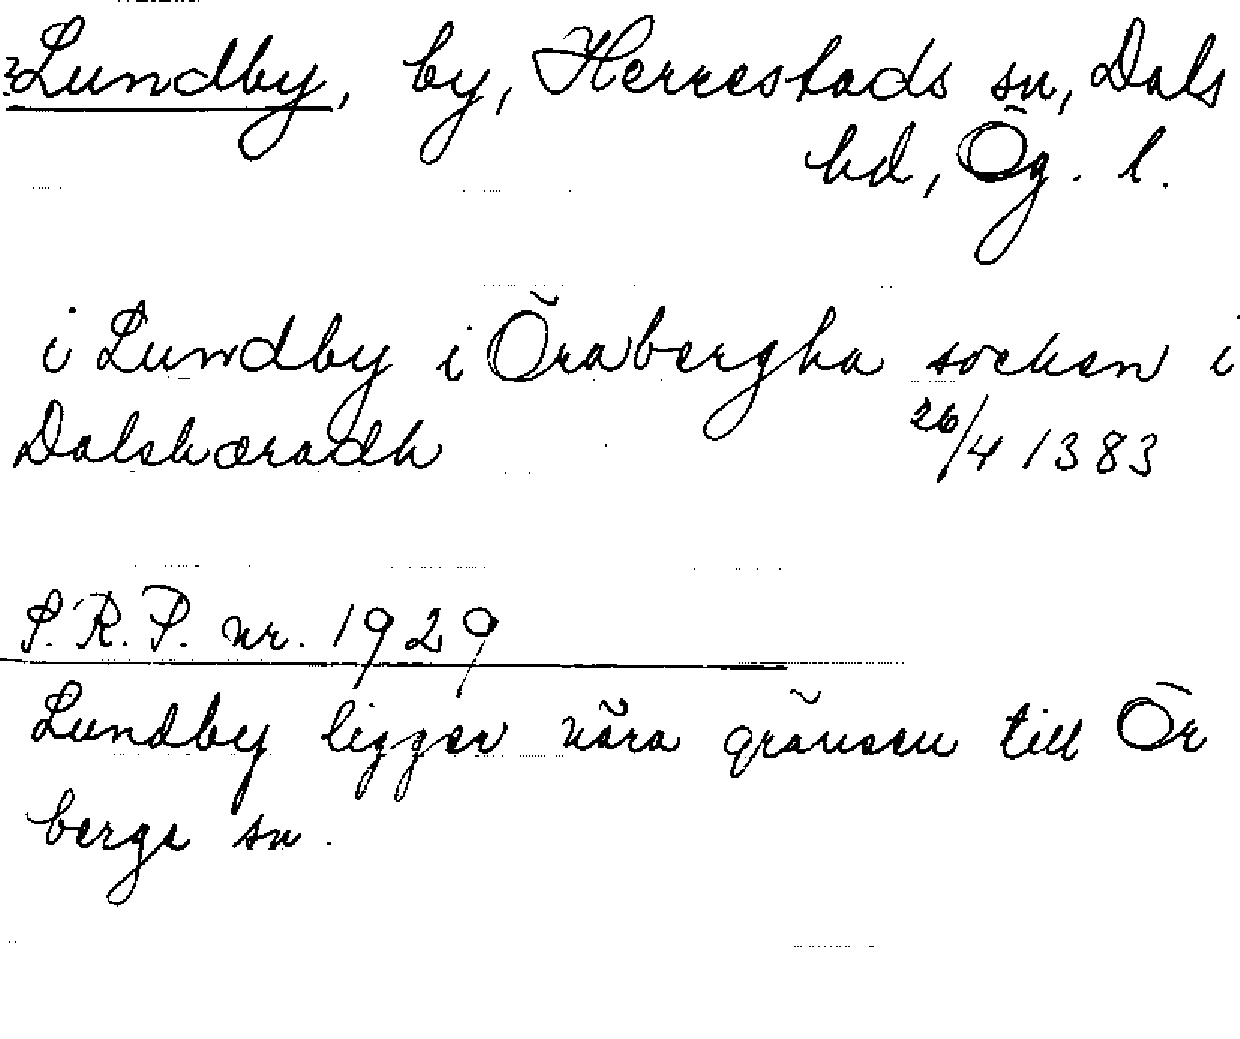 ?Lundby, by, Herrestads sn, Dals
hd, Ög. l.
i Lundby i Örabergha socken i
Dalshæradh 26/4 1383
S.R.P. nr. 1929
Lundby ligger nära gränsen till Ör
berga sn.